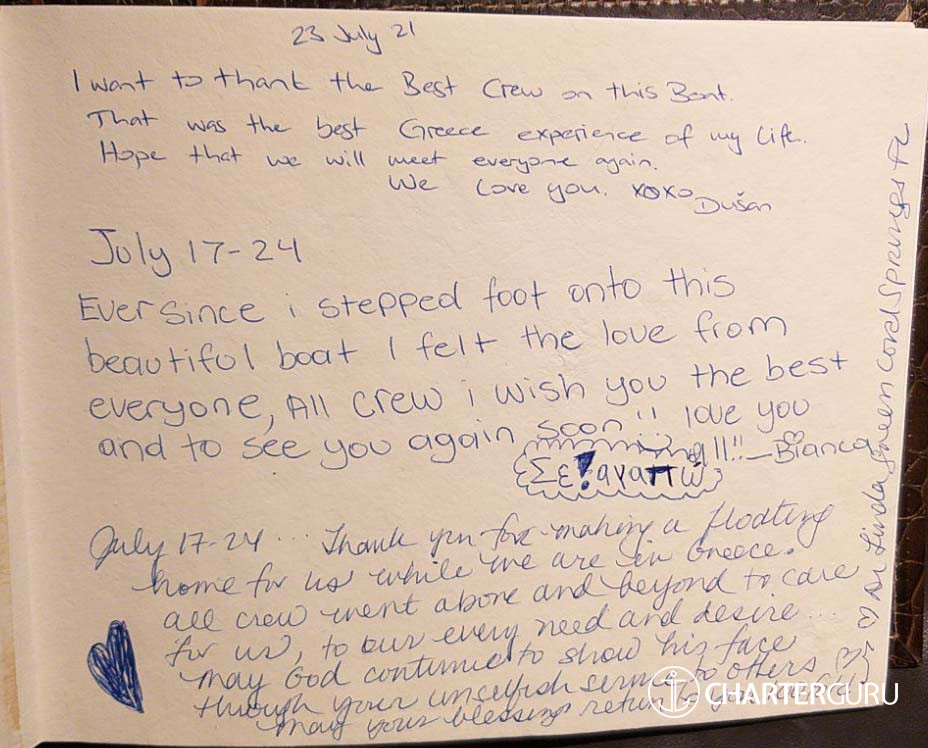 23 July 21
I want to thank the Best Crew on this Boat.
That was the best Greece experience of my life.
Hope that we will meet everyone again.
We love you. xoxo
Dušan
July 17-24
Ever since i stepped foot onto this
beautiful boat I felt the love from
everyone, All crew i wish you the best
and to see you again soon!! love you
all!!! - Bianca
Σε αγαπώ
July 17-24... Thank you for making a floating
home for us while we are in Greece.
all crew went above and beyond to care
for us, to our every need and desire...
may God continue to show his face
through your unselfish service to others
may your blessings return to you
♡ Dr Linda Green Coral Springs FL
CHARTERGURU